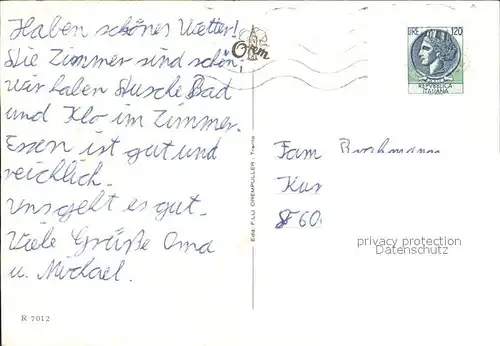 Haben schönes Wetter!
Die Zimmer sind schön,
wir haben Dusche Bad
und Klo im Zimmer.
Essen ist gut und
reichlich.
Uns geht es gut.
Viele Grüße Oma
u. Michael.
R 7012
Orem
Ediz. F.LLI OREMPULLER - Trento
LIRE 120
REPVBBLICA
ITALIANA
Fam
privacy protection
Datenschutz